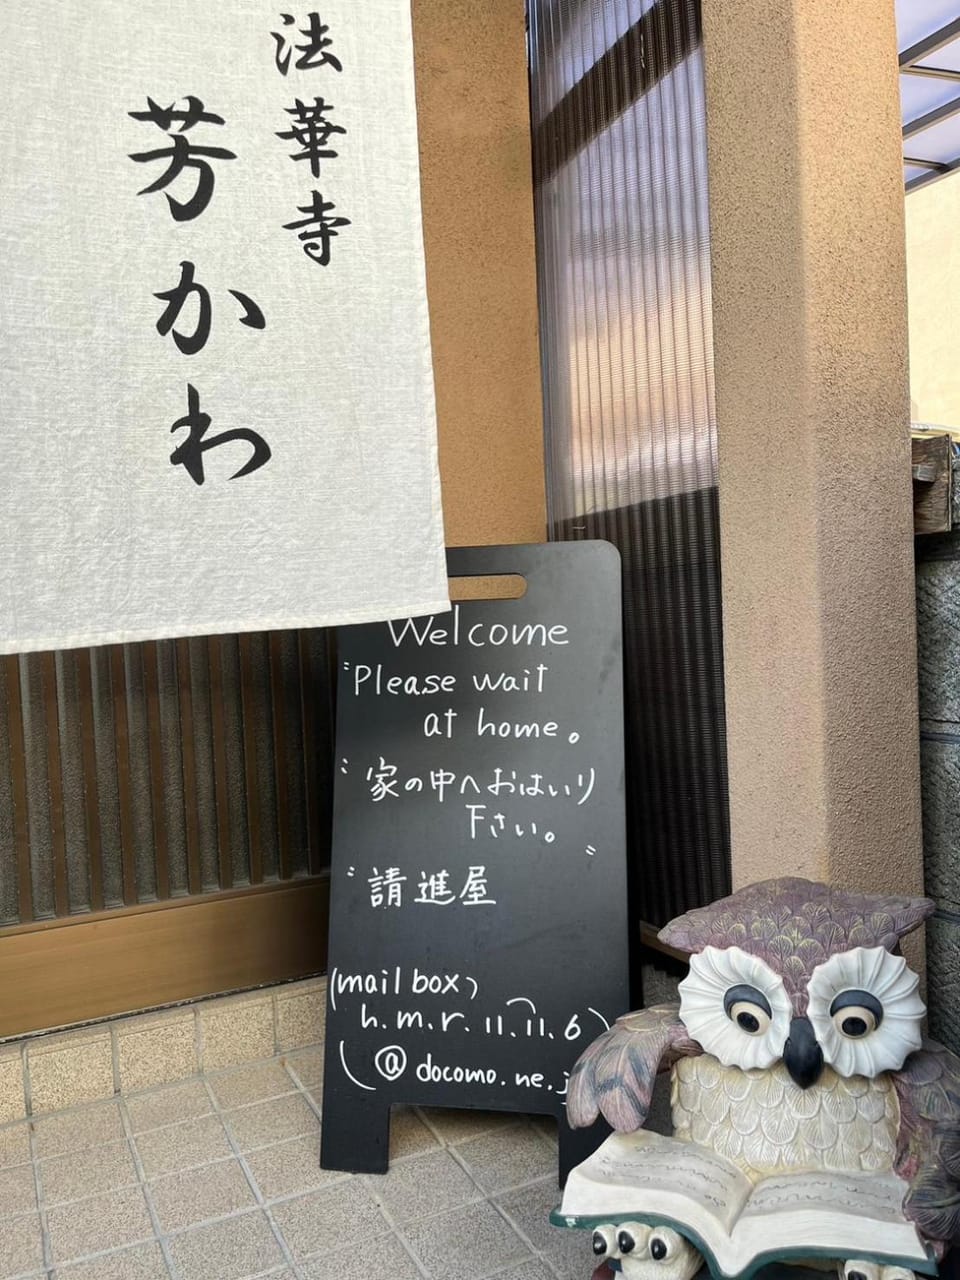 法華寺
芳かわ
Welcome
"Please wait
at home。
"家の中へおはいり
下さい。"
"請進屋
(mail box)
h.m.r.11.11.6
@ docomo.ne.j